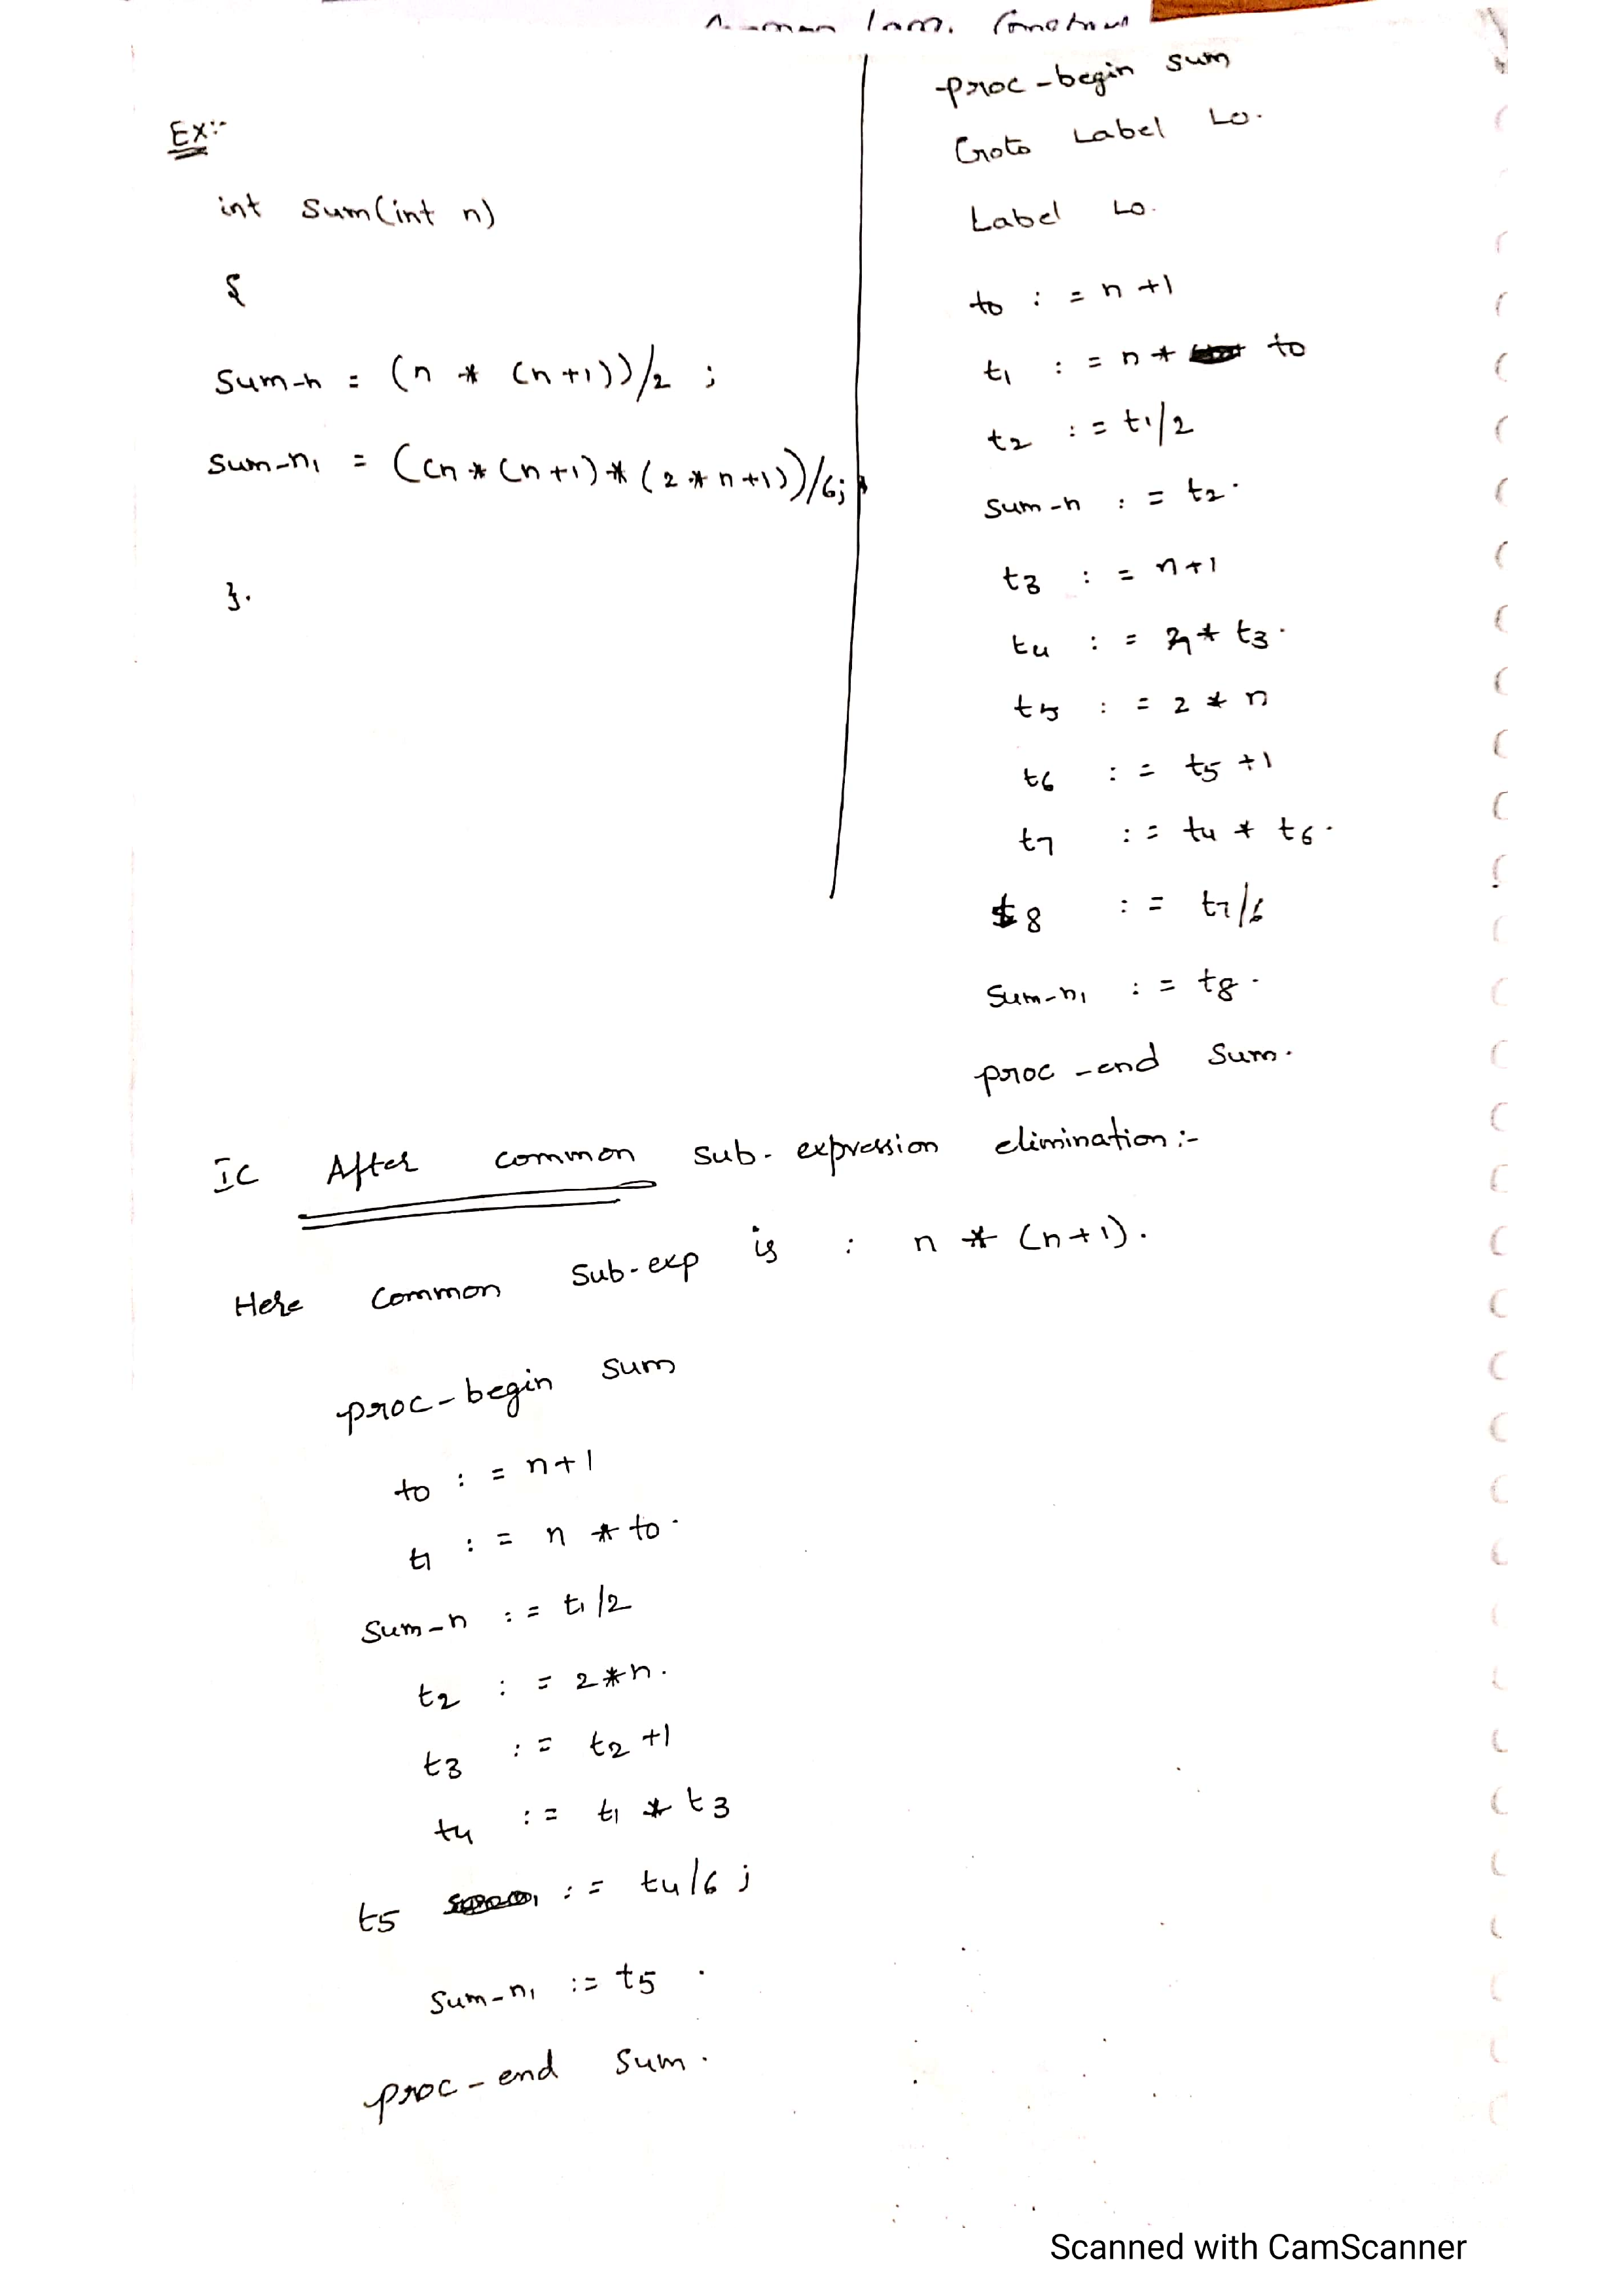 Ex:-
int sum(int n)
{
sum-n = (n * (n+1))/2 ;
sum-n1 = ((n * (n+1) * (2 * n+1))/6;
}.
proc-begin sum
Goto Label L0.
Label L0.
t0 := n+1
t1 := n * t0
t2 := t1/2
sum-n := t2.
t3 := n+1
t4 := n * t3.
t5 := 2 * n
t6 := t5 +1
t7 := t4 * t6.
t8 := t7/6
sum-n1 := t8.
proc-end sum.
IC After common sub-expression elimination:-
Here common sub-exp is : n * (n+1).
proc-begin sum
t0 := n+1
t1 := n * t0.
sum-n := t1/2
t2 := 2*n.
t3 := t2 +1
t4 := t1 * t3
t5 := t4/6 ;
sum-n1 := t5 .
proc-end sum.
Scanned with CamScanner